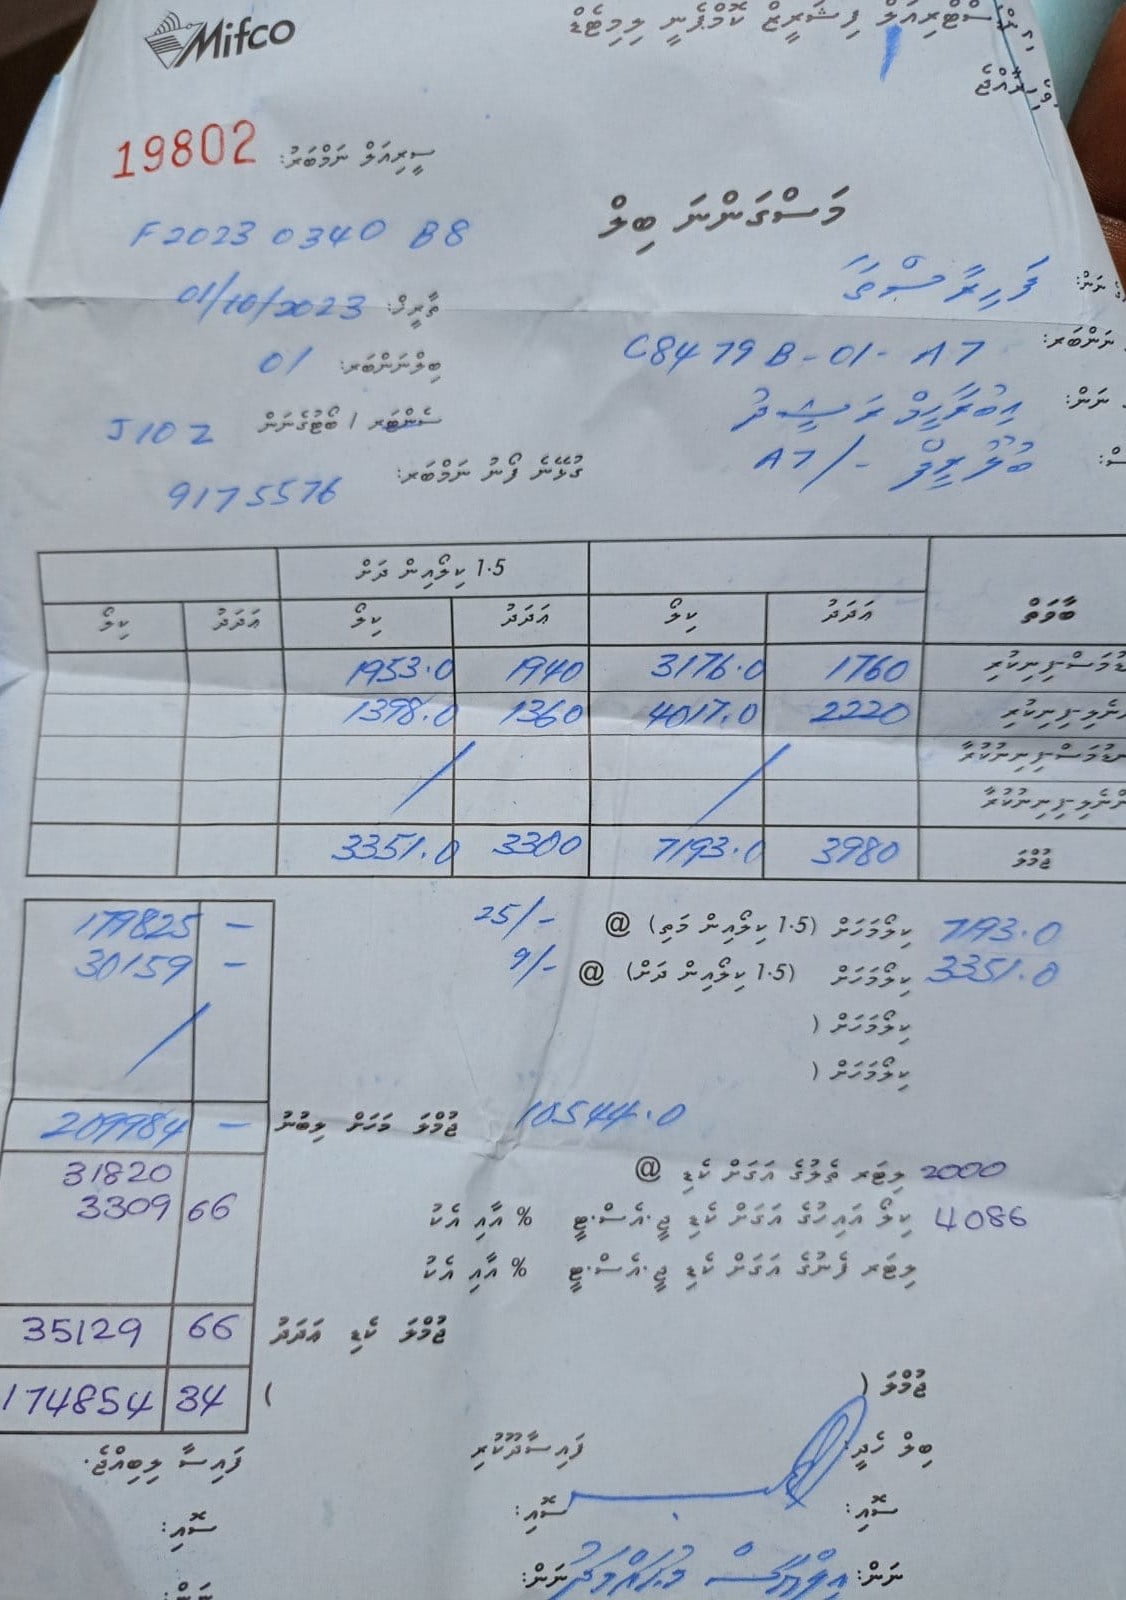 Mifco
ސްޓްރިއަލް ފިޝަރީޒް ކޮމްޕެނީ ލިމިޓެޑް
ސީރިއަލް ނަމްބަރު: 19802
މަސްގަންނަ ބިލް
F2023 0340 B8
ނަން: ފަހިރާސްތަ
ތާރީޚް: 01/10/2023
ނަންބަރ: C8479B-01-A7
ބިލްނަންބަރ: 01
ނަން: އިބްރާހީމް ރަޝީދު
ސެންޓަރ / ބޯޓުގެނަން J102
A7/-
ގުޅޭނެ ފޯނު ނަމްބަރ: 9175576
1.5 ކިލޯއިން ދަށް
ބާވަތް އަދަދު ކިލޯ އަދަދު ކިލޯ އަދަދު ކިލޯ
1760 3176.0 1940 1953.0
2220 4017.0 1360 1398.0
ޖުމްލަ 3980 7193.0 3300 3351.0
7193.0 ކިލޯމަހަށް (1.5 ކިލޯއިން މަތި) @ 25/- 179825 -
3351.0 ކިލޯމަހަށް (1.5 ކިލޯއިން ދަށް) @ 9/- 30159 -
ކިލޯމަހަށް (
ކިލޯމަހަށް (
10544.0 ޖުމްލަ މަހަށް ލިބުނު 209984 -
2000 ލިޓަރ ތެލުގެ އަގަށް ކެޑި @ 31820
4086 ކިލޯ އައިހުގެ އަގަށް ކެޑި ޖީ.އެސް.ޓީ % އާއި އެކު 3309 66
ލިޓަރ ފެނުގެ އަގަށް ކެޑި ޖީ.އެސް.ޓީ % އާއި އެކު
ޖުމްލަ ކެޑި އަދަދު 35129 66
ޖުމްލަ ( ) 174854 34
ބިލް ހެދީ: ފައިސާދޫކުރި ފައިސާ ލިބިއްޖެ.
ސޮއި: ސޮއި: ސޮއި:
ނަން: އިލްޔާސް މުޙައްމަދު ނަން: ނަން: